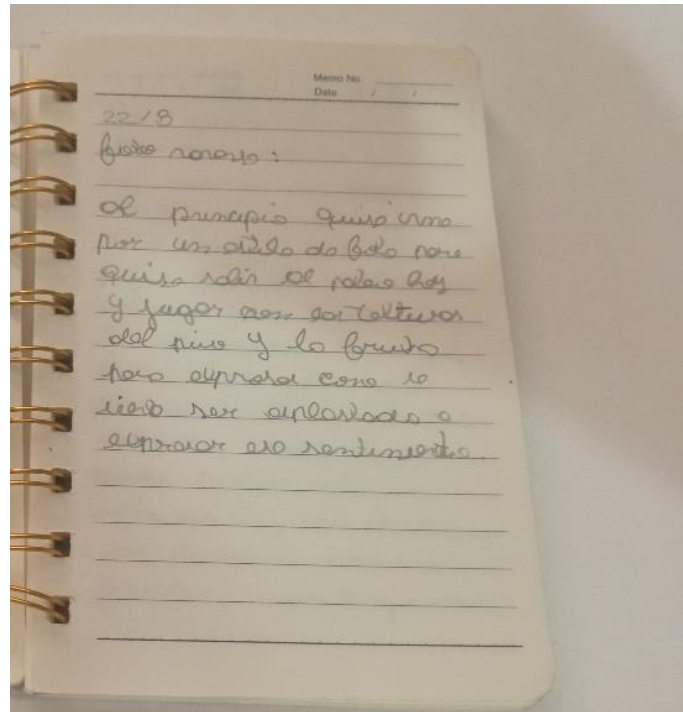 Memo No.
Date / /
22/8
al principio quise irme
por un estilo de foto pero
quise salir al patio hoy
y jugar con las texturas
del piso y la
para expresar como se
siente ser aplastado o
expresar ese sentimiento.